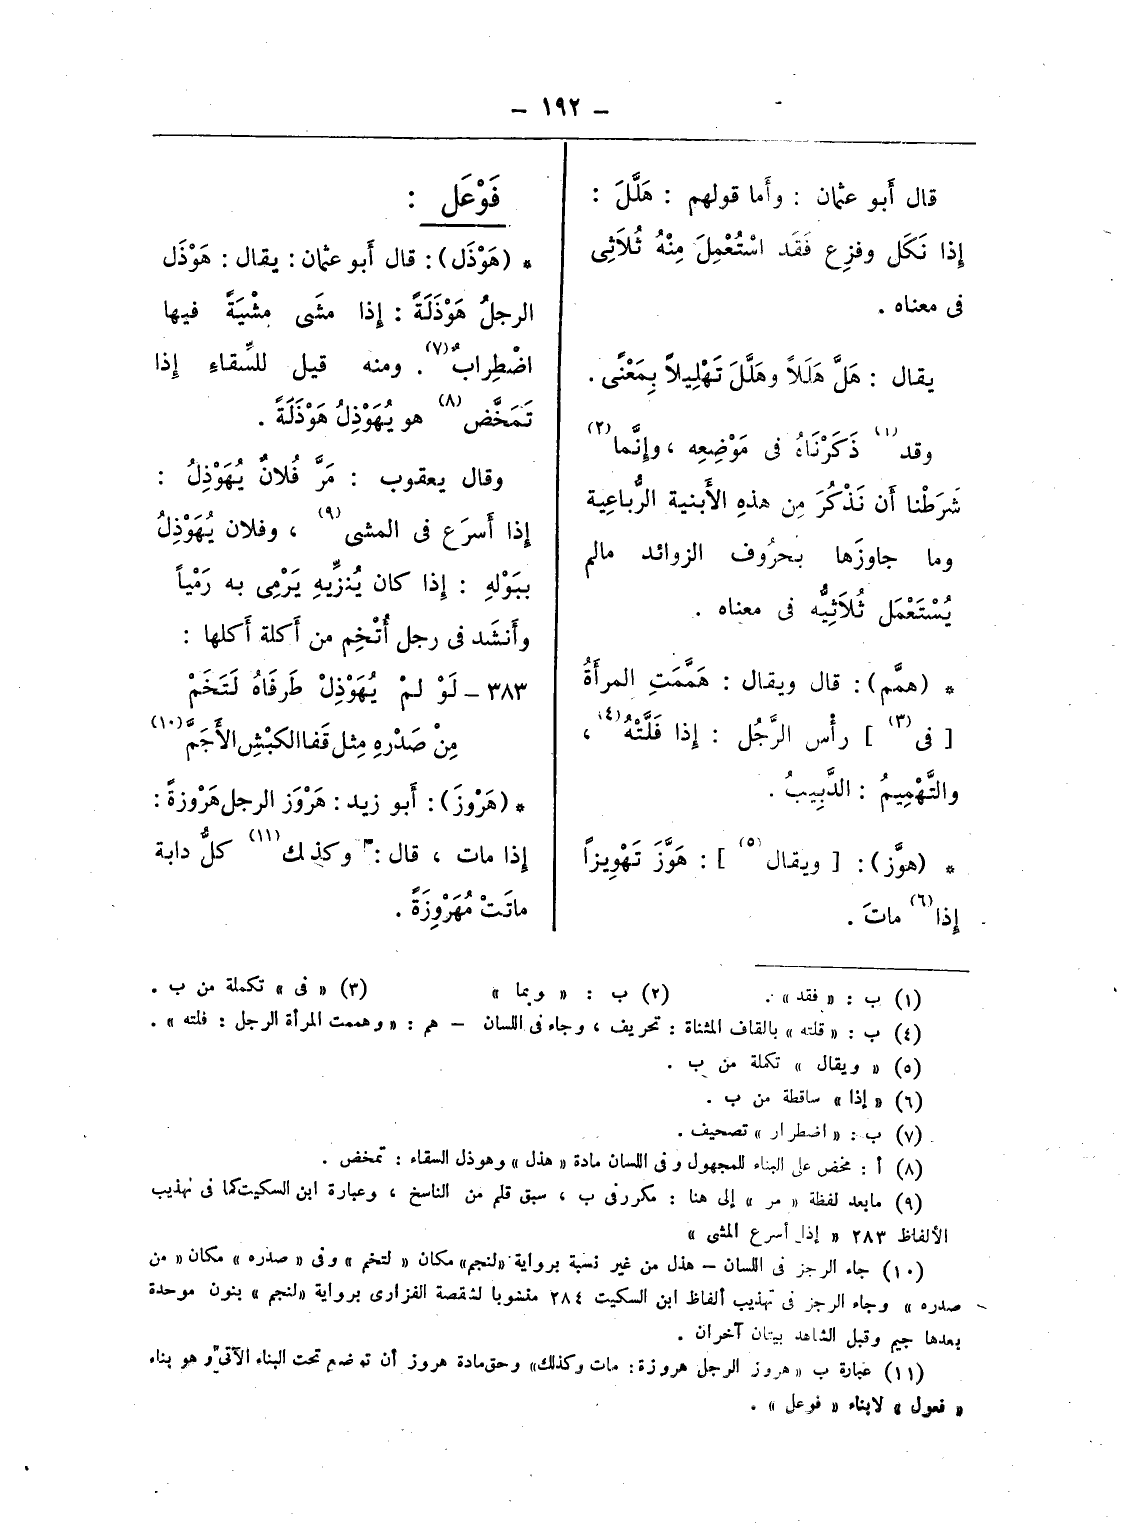 – ١٩٢ –
قال أَبو عثمان : وأَما قولهم : هَلَّلَ :
إذا نَكَل وفزِع فَقَد اسْتُعْمِلَ مِنْهُ ثُلَاثِى
فى معناه .
يقال : هَلَّ هَلَلاً وهَلَّلَ تَهْلِيلاً بِمَعْنًى .
وقد(١) ذَكَرْنَاهُ فى مَوْضِعِه ، وإِنَّما(٢)
شَرَطْنا أَن نَذْكُرَ مِن هذهِ الأَبنية الرُّباعِية
وما جاوزَها بحرُوف الزوائد مالم
يُسْتَعْمَل ثُلَاثِيُّه فى معناه .
* (همَّم) : قال ويقال : هَمَّمَتِ المرأَةُ
[ فى(٣) ] رأْس الرَّجُل : إذا فَلَّتْهُ(٤) ،
والتَّهْمِيمُ : الدَّبِيبُ .
* (هوَّز) : [ ويقال(٥) ] : هَوَّزَ تَهْوِيزاً
إِذا(٦) ماتَ .
فَوْعَل :
* (هَوْذَل) : قال أَبو عثمان : يقال : هَوْذَل
الرجلُ هَوْذَلَةً : إِذا مشَى مِشْيَةً فيها
اضْطِرابٌ(٧) . ومنه قيل للسِّقاءِ إذا
تَمَخَّض(٨) هو يُهَوْذِلُ هَوْذَلَةً .
وقال يعقوب : مَرَّ فُلانٌ يُهَوْذِلُ :
إِذا أَسرَع فى المشى(٩) ، وفلان يُهَوْذِلُ
ببَوْلهِ : إِذا كان يُنزِّيهِ يَرْمِى به رَمْياً
وأَنشَد فى رجل أُتْخِم من أَكلة أَكلها :
٣٨٣ – لَوْ لمْ يُهَوْذِلْ طَرفَاهُ لَتَخَمْ
مِنْ صَدْرهِ مِثل قَفا الكبْشِ الأَجَمَّ(١٠)
* (هَرْوزَ) : أَبو زيد : هَرْوَز الرجل هَرْوزةً :
إِذا مات ، قال : وكذلك(١١) كلُّ دابة
ماتَتْ مُهَرْوِزَةً .
(١) ب : « فقد » . (٢) ب : « وبما » (٣) « فى » تكملة من ب .
(٤) ب : « قلته » بالقاف المثناة : تحريف ، وجاء فى اللسان – هم : « وهممت المرأة الرجل : فلته » .
(٥) « ويقال » تكملة من ب .
(٦) « إذا » ساقطة من ب .
(٧) ب : « اضطرار » تصحيف .
(٨) أ : مخض على البناء للمجهول وفى اللسان مادة « هذل » وهوذل السقاء : تمخض .
(٩) مابعد لفظة « مر » إلى هنا : مكرر فى ب ، سبق قلم من الناسخ ، وعبارة ابن السكيت كما فى تهذيب
الألفاظ ٢٨٣ « إذا أسرع المشى »
(١٠) جاء الرجز فى اللسان – هذل من غير نسبة برواية « لنجم » مكان « لتخم » وفى « صدره » مكان « من
صدره » وجاء الرجز فى تهذيب ألفاظ ابن السكيت ٢٨٤ منسوبا لشقصة الفزارى برواية « لنجم » بنون موحدة
بعدها جيم وقبل الشاهد بيتان آخران .
(١١) عبارة ب « هروز الرجل هروزة : مات وكذلك » وحق مادة هروز أن توضع تحت البناء الآتى وهو بناء
« فعول » لا بناء « فوعل » .